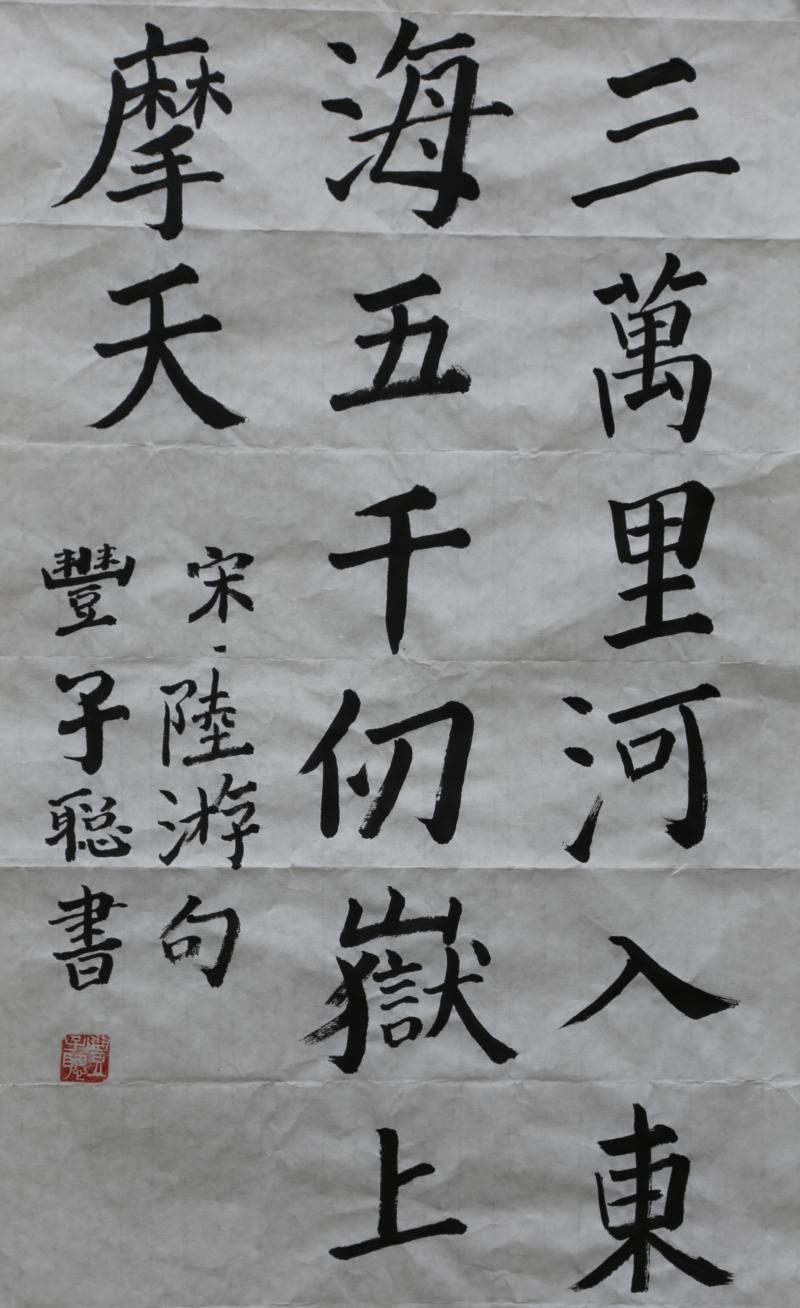 三萬里河入東
海五千仞嶽上
摩天
宋、陸游句
豐子聡書
豐子聰